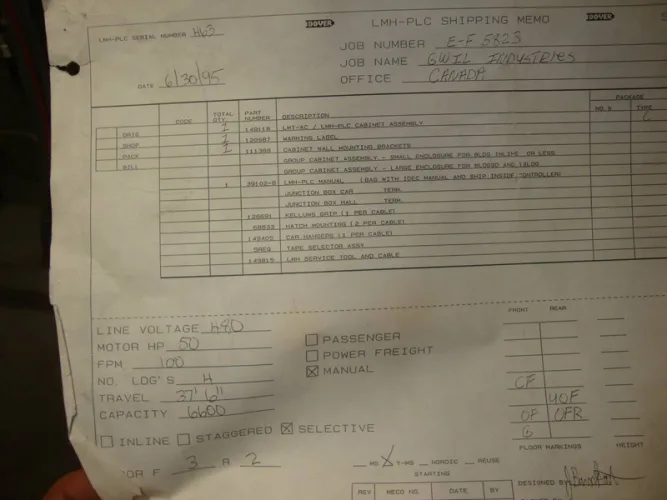 DOVER LMH-PLC SHIPPING MEMO DOVER
LMH-PLC SERIAL NUMBER H63
JOB NUMBER E-F 5823
JOB NAME GWIL INDUSTRIES
DATE 6/30/95 OFFICE CANADA
PACKAGE
CODE TOTAL QTY. PART NUMBER DESCRIPTION NO.# TYPE
ORIG 149118 LMT-AC / LMH-PLC CABINET ASSEMBLY
SHOP 120987 WARNING LABEL
PACK 111389 CABINET WALL MOUNTING BRACKETS
BILL GROUP CABINET ASSEMBLY - SMALL ENCLOSURE FOR BLDG INLINE OR LESS
GROUP CABINET ASSEMBLY - LARGE ENCLOSURE FOR
1 LMH-PLC MANUAL (BAG WITH IDEC MANUAL AND SHIP INSIDE CONTROLLER)
JUNCTION BOX CAR TERM.
JUNCTION BOX HALL TERM.
KELLUMS GRIP (1 PER CABLE)
HATCH MOUNTING (2 PER CABLE)
CAR HANGERS (1 PER CABLE)
TAPE SELECTOR ASSY
149815 LMH SERVICE TOOL AND CABLE
LINE VOLTAGE 480
MOTOR HP 50
FPM 100
NO. LDG'S 4
TRAVEL 37' 6"
CAPACITY 6600
PASSENGER
POWER FREIGHT
MANUAL
INLINE STAGGERED SELECTIVE
FRONT REAR
CF
UOF
OP UFR
G
FLOOR MARKINGS WEIGHT
OR F 3 R 2
MG Y-MG NORDIC REUSE
STARTING
REV MECO NO. DATE BY
DESIGNED BY